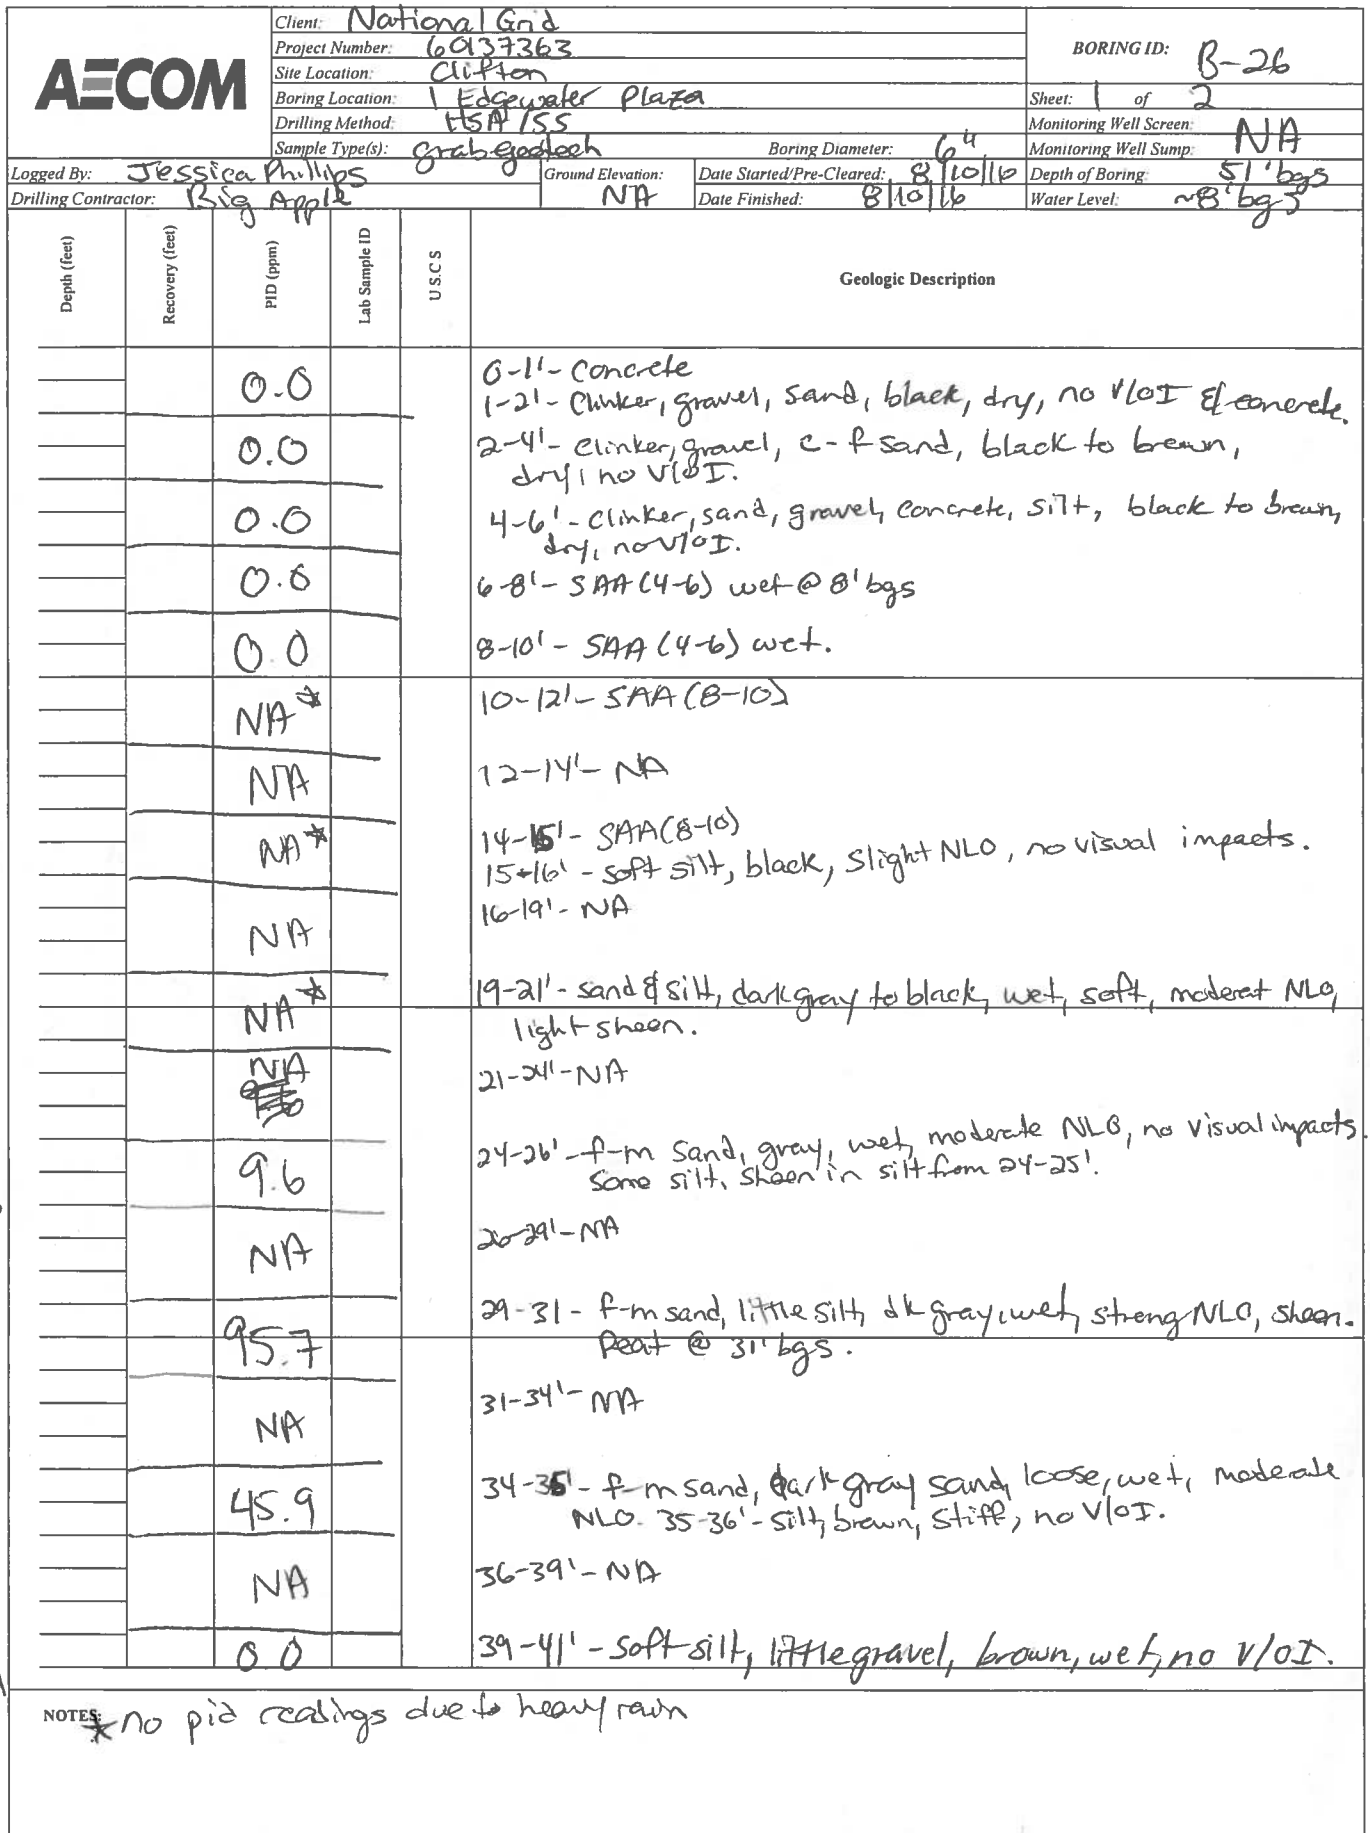 AECOM
Client: National Grid
Project Number: 60137363
Site Location: Clifton
Boring Location: 1 Edgewater Plaza
Drilling Method: HSA / SS
Sample Type(s): grab-geotech
Boring Diameter: 6"
BORING ID: B-26
Sheet: 1 of 2
Monitoring Well Screen: NA
Monitoring Well Sump:
Logged By: Jessica Phillips
Ground Elevation: NA
Date Started/Pre-Cleared: 8/10/16
Depth of Boring: 51' bgs
Drilling Contractor: Big Apple
Date Finished: 8/10/16
Water Level: ~8' bgs
Depth (feet)
Recovery (feet)
PID (ppm)
Lab Sample ID
U S.C S
Geologic Description
0.0
0-1' - Concrete
1-2' - Clinker, gravel, sand, black, dry, no V/OI & concrete.
0.0
2-4' - Clinker, gravel, c-f sand, black to brown,
dry, no V/OI.
0.0
4-6' - Clinker, sand, gravel, concrete, silt, black to brown,
dry, no V/OI.
0.0
6-8' - SAA (4-6) wet @ 8' bgs
0.0
8-10' - SAA (4-6) wet.
NA*
10-12' - SAA (8-10)
NA
12-14' - NA
NA*
14-15' - SAA (8-10)
15-16' - soft silt, black, slight NLO, no visual impacts.
NA
16-19' - NA
NA*
19-21' - sand & silt, dark gray to black, wet, soft, moderat NLO,
light sheen.
NA
21-24' - NA
9.6
24-26' - f-m sand, gray, wet, moderate NLO, no visual impacts.
some silt, sheen in silt from 24-25'.
NA
26-29' - NA
95.7
29-31 - f-m sand, little silt, dk gray, wet, strong NLO, sheen.
Peat @ 31' bgs.
NA
31-34' - NA
45.9
34-35' - f-m sand, dark gray sand, loose, wet, moderate
NLO. 35-36' - silt, brown, stiff, no V/OI.
NA
36-39' - NA
0.0
39-41' - soft silt, little gravel, brown, wet, no V/OI.
NOTES:
* no pid readings due to heavy rain